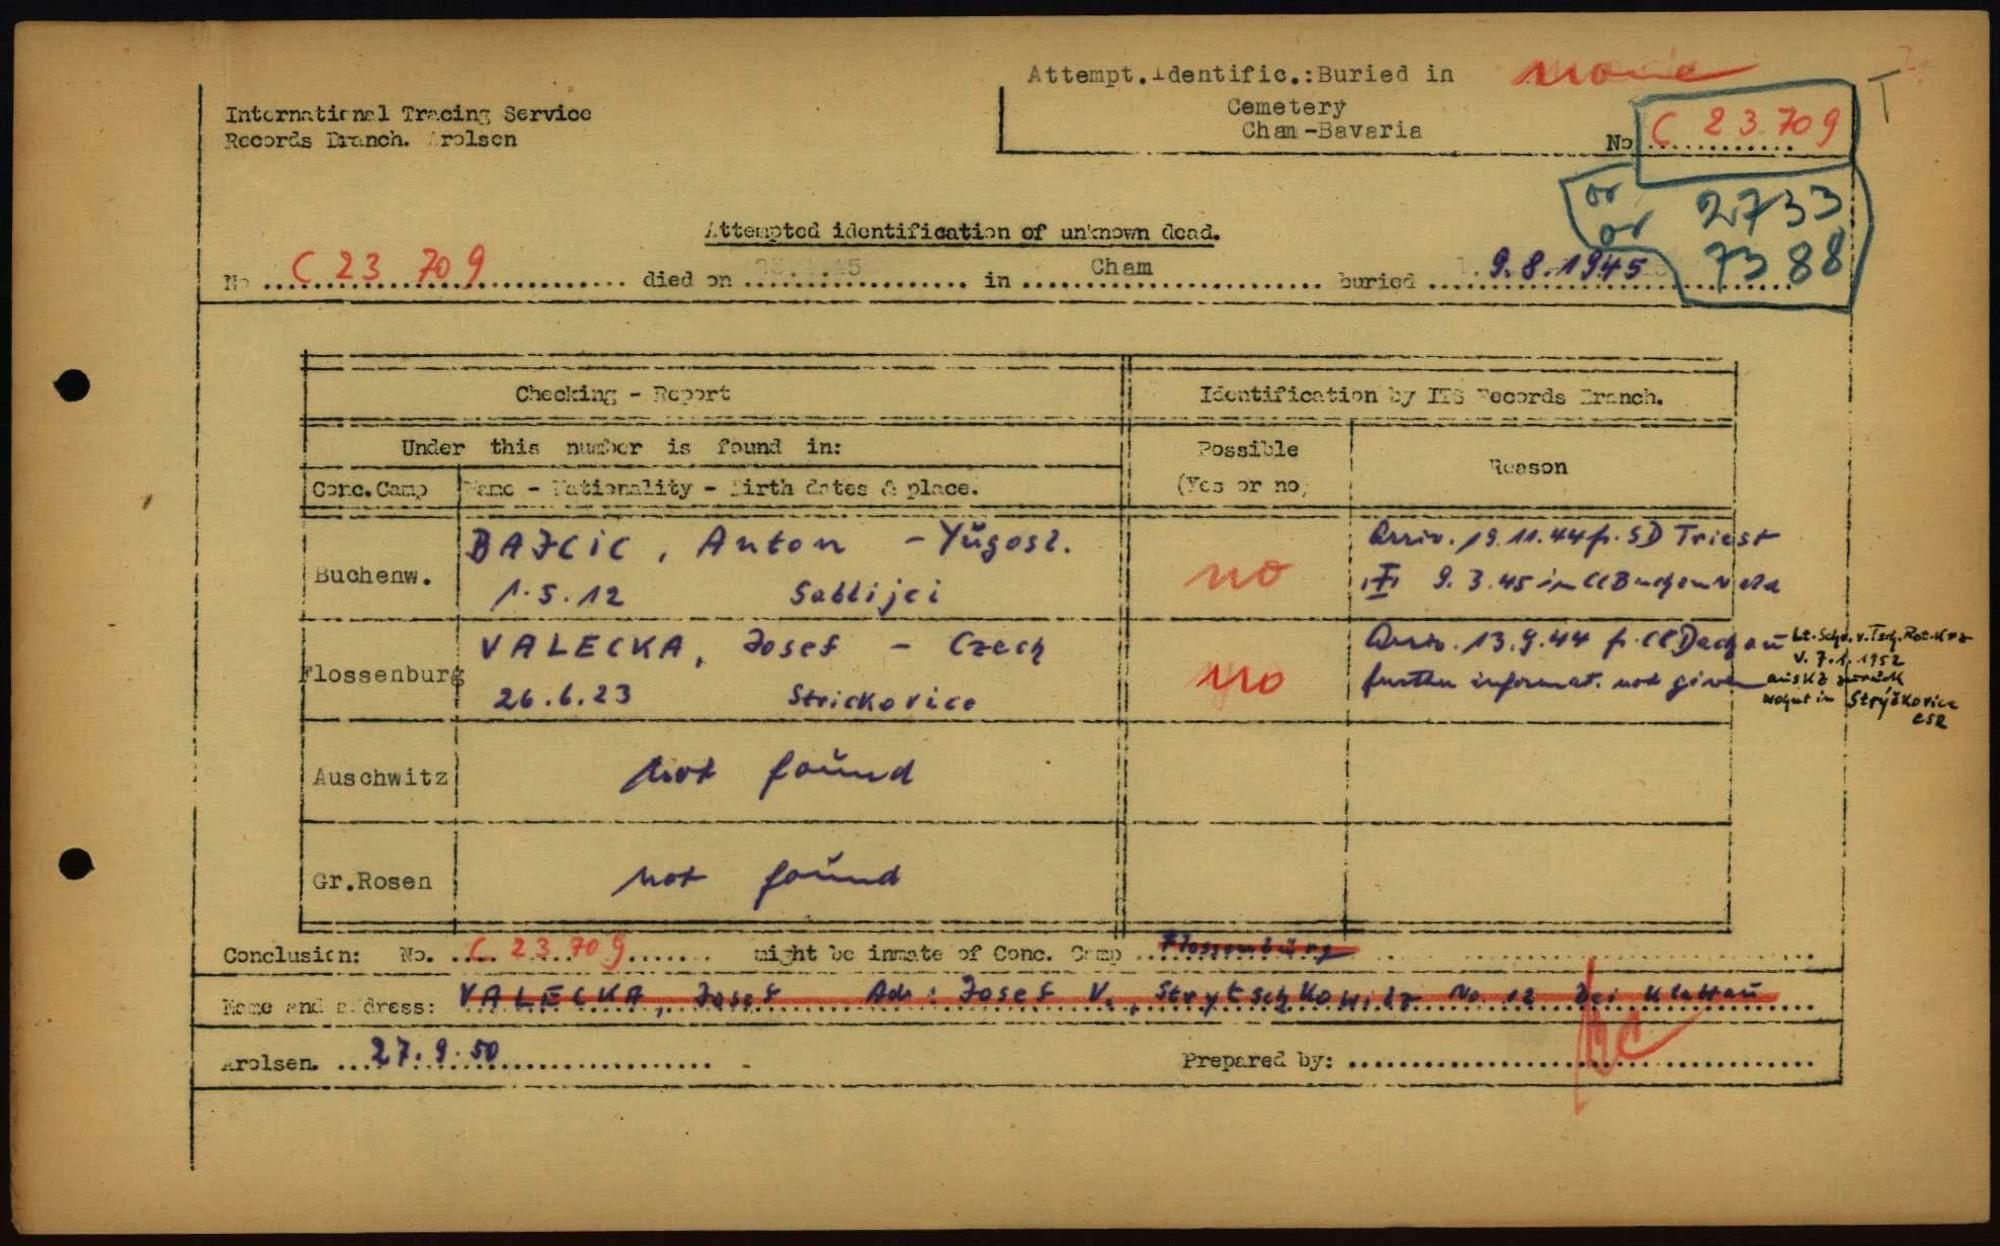 Attempt.Identific.:Buried in none
Cemetery
Cham-Bavaria
International Tracing Service
Records Branch. Arolsen
No C 23 709
T
or 2733
or 7388
Attempted identification of unknown dead.
No C 23 709 died on in Cham buried 9.8.1945
Checking - Report
Identification by ITS Records Branch.
Under this number is found in:
Possible
(Yes or no)
Reason
Conc.Camp
Name - Nationality - Birth dates & place.
Buchenw.
BAJCIC, Anton - Yugosl.
1.5.12 Sablijci
no
Arriv. 19.11.44 fr. SD Triest
9.3.45 in CC Buchenwald
Flossenburg
VALECKA, Josef - Czech
26.6.23 Strickovice
no
Arriv. 13.9.44 fr. CC Dachau
further informat. not given
Lt. Schr. v. Tsch. Rot. Krz
v. 7.1.1952
aus KZ zurück
wohnt in Strýčkovice
CSR
Auschwitz
not found
Gr.Rosen
not found
Conclusion: No. C 23 709 might be inmate of Conc. Camp Flossenbürg
Name and address: VALECKA, Josef Adr: Josef V., Strytschkowitz No. 12 bei Klattau
Arolsen. 27.9.50
Prepared by: